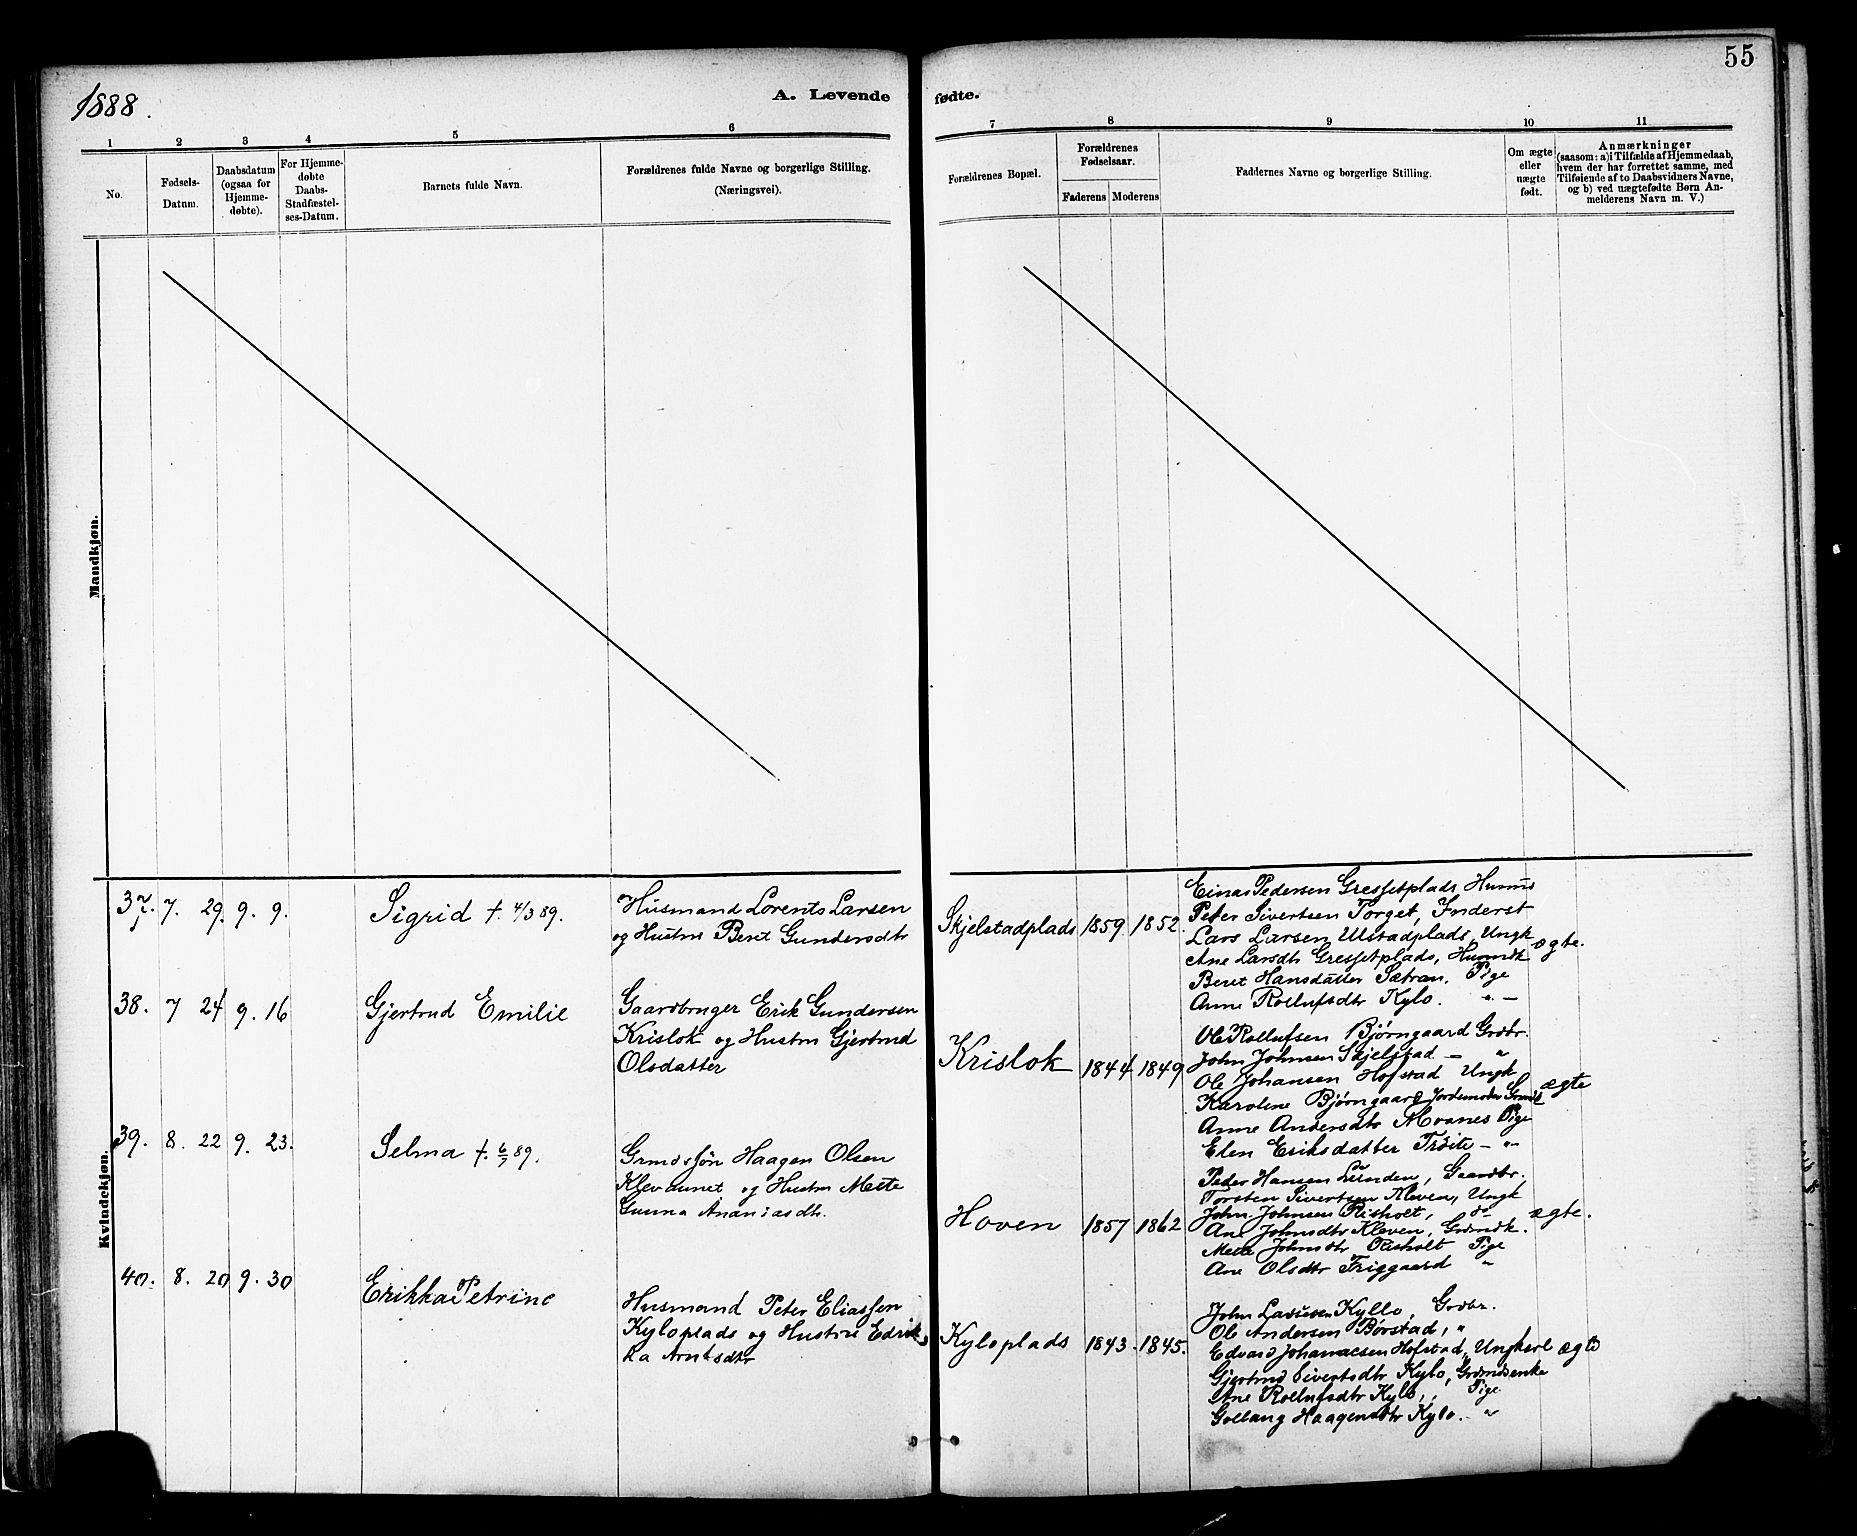 1888.
A. Levende fødte.
55
1 2 3 4 5 6 7 8 9 10 11
No.
Fødsels-
Datum.
Daabsdatum
(ogsaa for
Hjemme-
døbte).
For Hjemme-
døbte
Daabs-
Stadfæstel-
ses-Datum.
Barnets fulde Navn.
Forældrenes fulde Navne og borgerlige Stilling.
(Næringsvei).
Forældrenes Bopæl.
Forældrenes
Fødselsaar.
Faderens Moderens
Faddernes Navne og borgerlige Stilling.
Om ægte
eller
uægte
født.
Anmærkninger
(saasom: a) i Tilfælde af Hjemmedaab,
hvem der har forrettet samme, med
Tilføiende af to Daabsvidners Navne,
og b) ved uægtefødte Børn An-
melderens Navn m. V.)
Mandkjøn.
Kvindekjøn.
37. 7. 29. 9. 9.
Sigrid †. 4/3 89.
Husmand Lorents Larsen
og Hustru Beret Gundersdtr
Skjelstadplads 1859 1852.
Einar Pedersen Gressetplads, Husms
Peter Sivertsen Torget, Inderst
Lars Larsen Ulstadplads, Ungk
Ane Larsdtr Gressetplads, Husmdk
Beret Hansdatter Sætran, Pige
Anne Rollufsdtr Kylo. " –
ægte.
38. 7 24 9. 16
Gjertrud Emilie
Gaardbruger Erik Gundersen
Krislok og Hustru Gjertrud
Olsdatter
Krislok 1844 1849
Ole Rollufsen Bjørngaard Grdbr.
John Johnsen Skjelstad – "
Ole Johansen Hofstad Ungk
Karoline Bjørngaard Jordemoder
Anne Andersdtr Moanes Pige
Elen Eriksdatter Trøite – "
ægte
39. 8. 22 9. 23.
Selma †. 6/7 89.
Grmdssøn Haagen Olsen
Klevaunet og Hustru Mette
Gunna Ananiasdtr.
Hoven 1857 1862
Peder Hansen Lunden, Gaardbr.
Torsten Sivertsen Kleven, Ungk
John Johnsen Risholt, do
Ane Johnsdtr Kleven, Grdmdk.
Mette Johnsdtr Risholt Pige
Ane Olsdtr Triggaard "
ægte.
40. 8. 20 9. 30
Erikka Petrine
Husmand Peter Eliassen
Kyloplads og Hustru Edrik
ka Arntsdtr
Kyloplads 1843. 1845.
John Larsen Kyllo, Grdbr.
Ole Andersen Børstad, "
Edvard Johannesen Hofstad, Ungkarl
Gjertrud Sivertsdtr Kylo, Grdmdsenke
Ane Rollufsdtr Kylo, Pige
Gollaug Haagensdtr Kylo. "
ægte